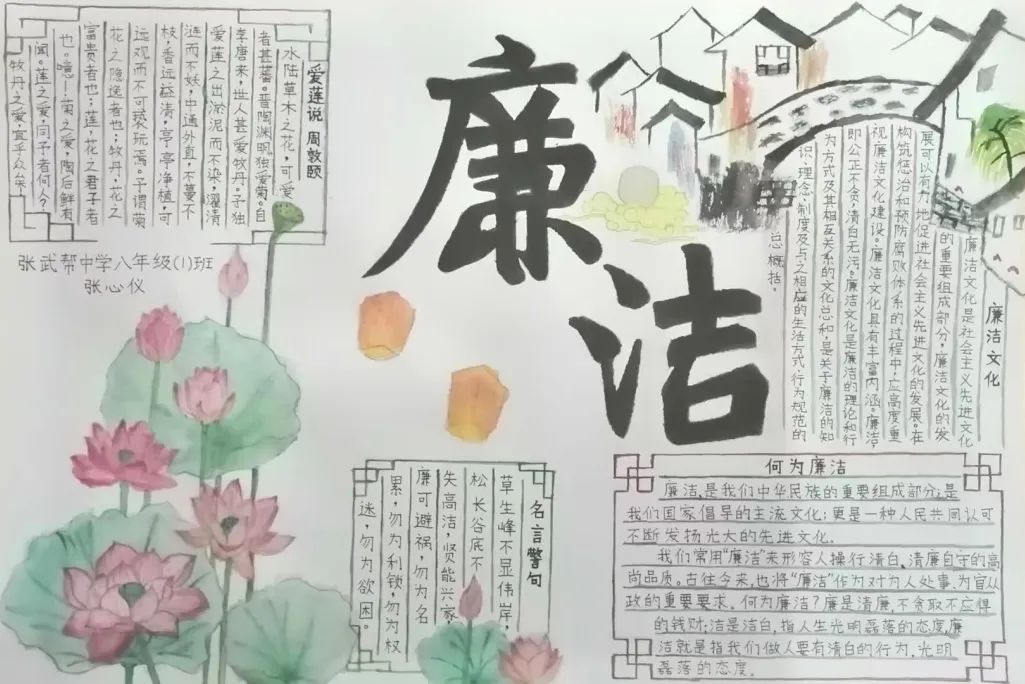 廉洁
爱莲说 周敦颐
水陆草木之花，可爱
者甚蕃。晋陶渊明独爱菊。自
李唐来，世人甚爱牡丹。予独
爱莲之出淤泥而不染，濯清
涟而不妖，中通外直，不蔓不
枝，香远益清，亭亭净植，可
远观而不可亵玩焉。予谓菊
花之隐逸者也；牡丹，花之
富贵者也；莲，花之君子者
也。噫！菊之爱，陶后鲜有
闻。莲之爱，同予者何人？
牡丹之爱，宜乎众矣。
张武帮中学八年级(1)班
张心仪
廉洁文化
廉洁文化是社会主义先进文化
的重要组成部分，廉洁文化的发
展可以有力地促进社会主义先进文化的发展。在
构筑惩治和预防腐败体系的过程中，应高度重
视廉洁文化建设。廉洁文化具有丰富内涵。廉洁，
即公正不贪，清白无污。廉洁文化是廉洁的理论和行
为方式及其相互关系的文化总和，是关于廉洁的知
识、理念、制度及与之相应的生活方式、行为规范的
总概括。
名言警句
草生峰不显伟岸，
松长谷底不
失高洁，贤能兴家，
廉可避祸，勿为名
累，勿为利锁，勿为权
迷，勿为欲困。
何为廉洁
廉洁，是我们中华民族的重要组成部分；是
我们国家倡导的主流文化；更是一种人民共同认可
不断发扬光大的先进文化.
我们常用“廉洁”来形容人操行清白、清廉自守的高
尚品质。古往今来，也将“廉洁”作为对为人处事、为官从
政的重要要求。何为廉洁？廉是清廉，不贪取不应得
的钱财；洁是洁白，指人生光明磊落的态度，廉
洁就是指我们做人要有清白的行为，光明
磊落的态度。